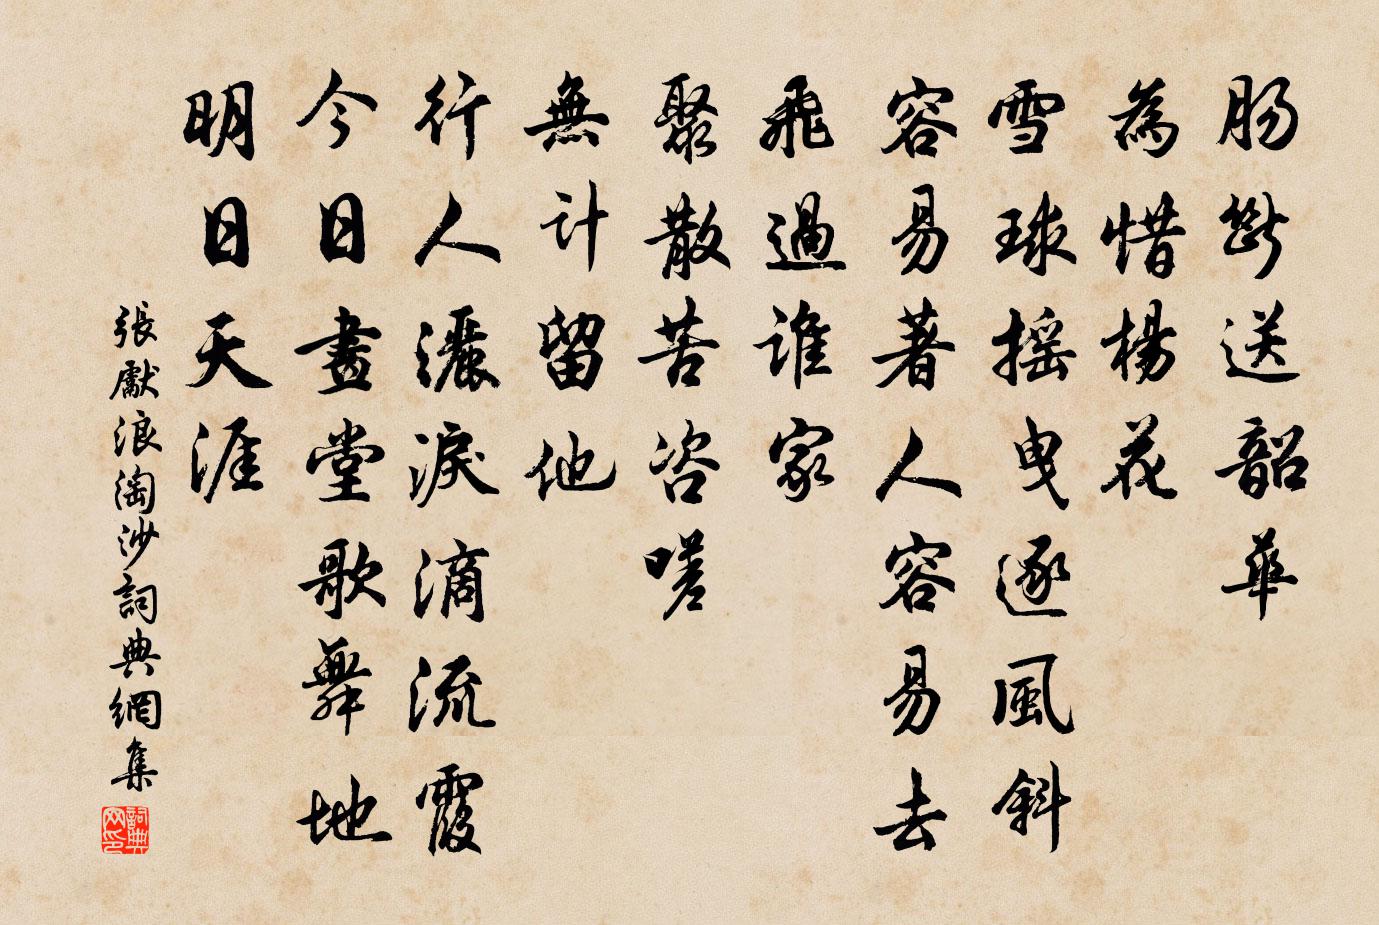 肠斷送韶華
為惜楊花
雪球摇曳逐風斜
容易著人容易去
飛過誰家
聚散苦咨嗟
無計留他
行人灑淚滴流霞
今日畫堂歌舞地
明日天涯
張獻浪淘沙詞典網集
詞典网印